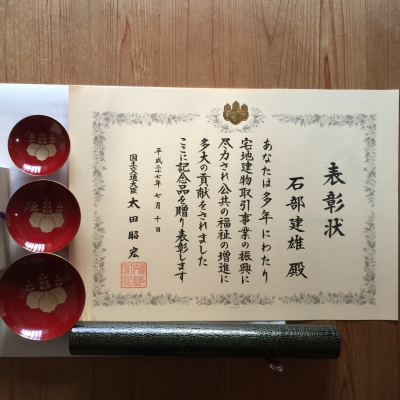 表彰状
石部建雄 殿
あなたは多年にわたり
宅地建物取引事業の振興に
尽力され公共の福祉の増進に
多大の貢献をされました
ここに記念品を贈り表彰します
平成二十七年七月十日
国土交通大臣 太田昭宏